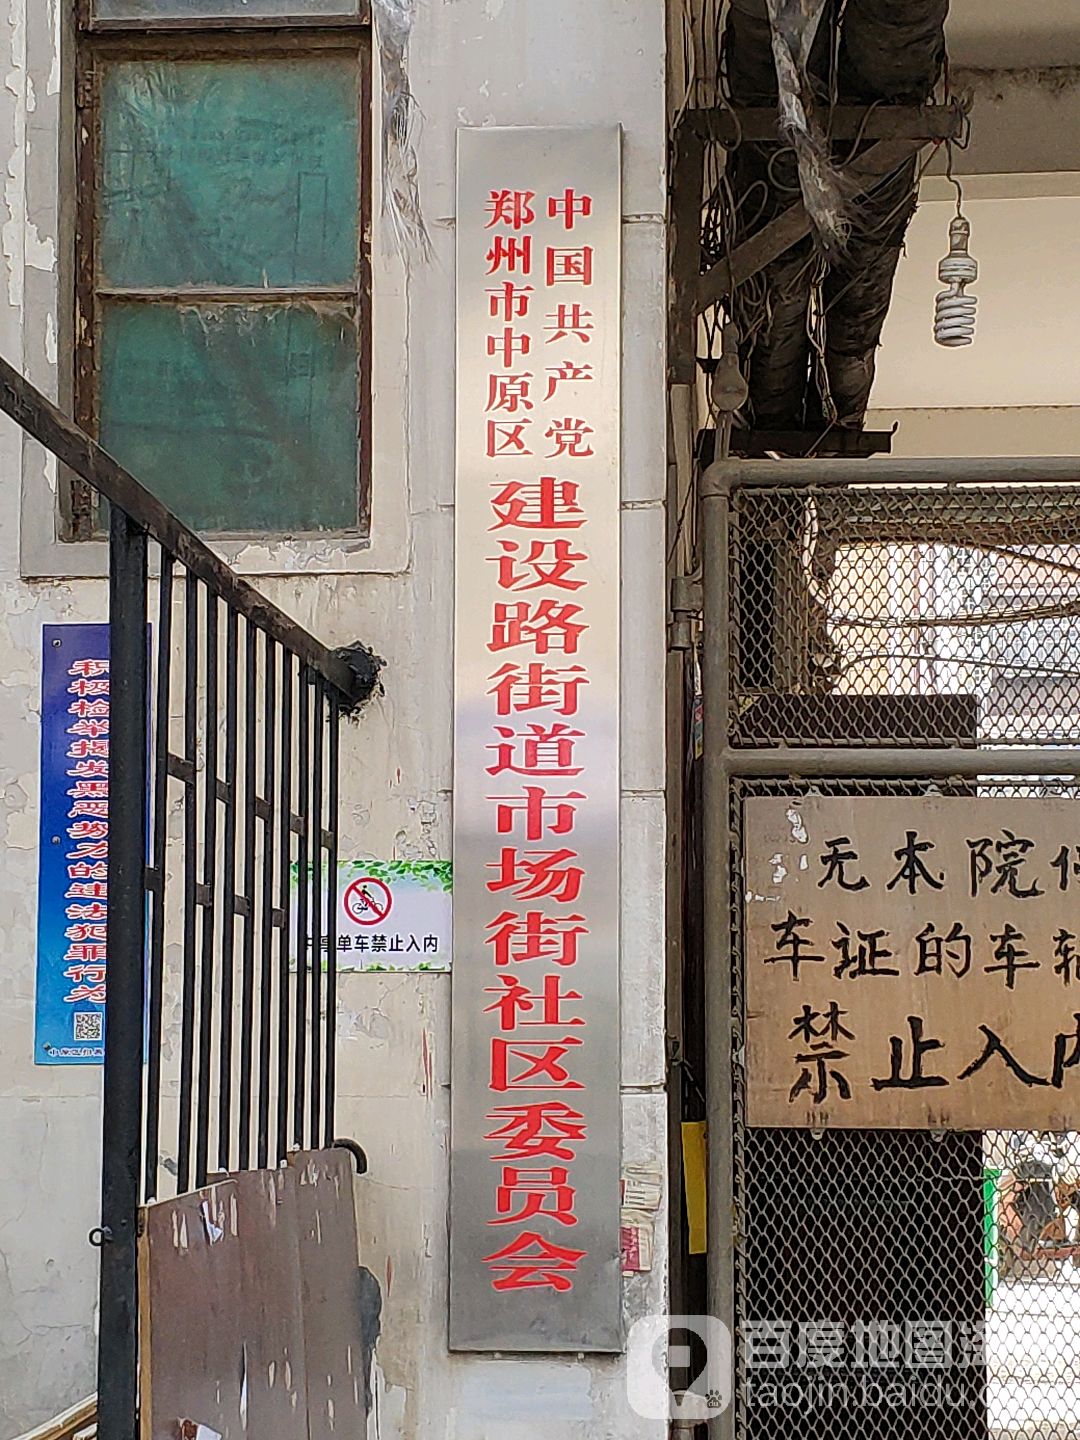 中国共产党
郑州市中原区
建设路街道市场街社区委员会
积极检举揭发黑恶势力的违法犯罪行为
单车禁止入内
无本院停
车证的车辆
禁止入内
百度地图淘
taojin.baidu.c